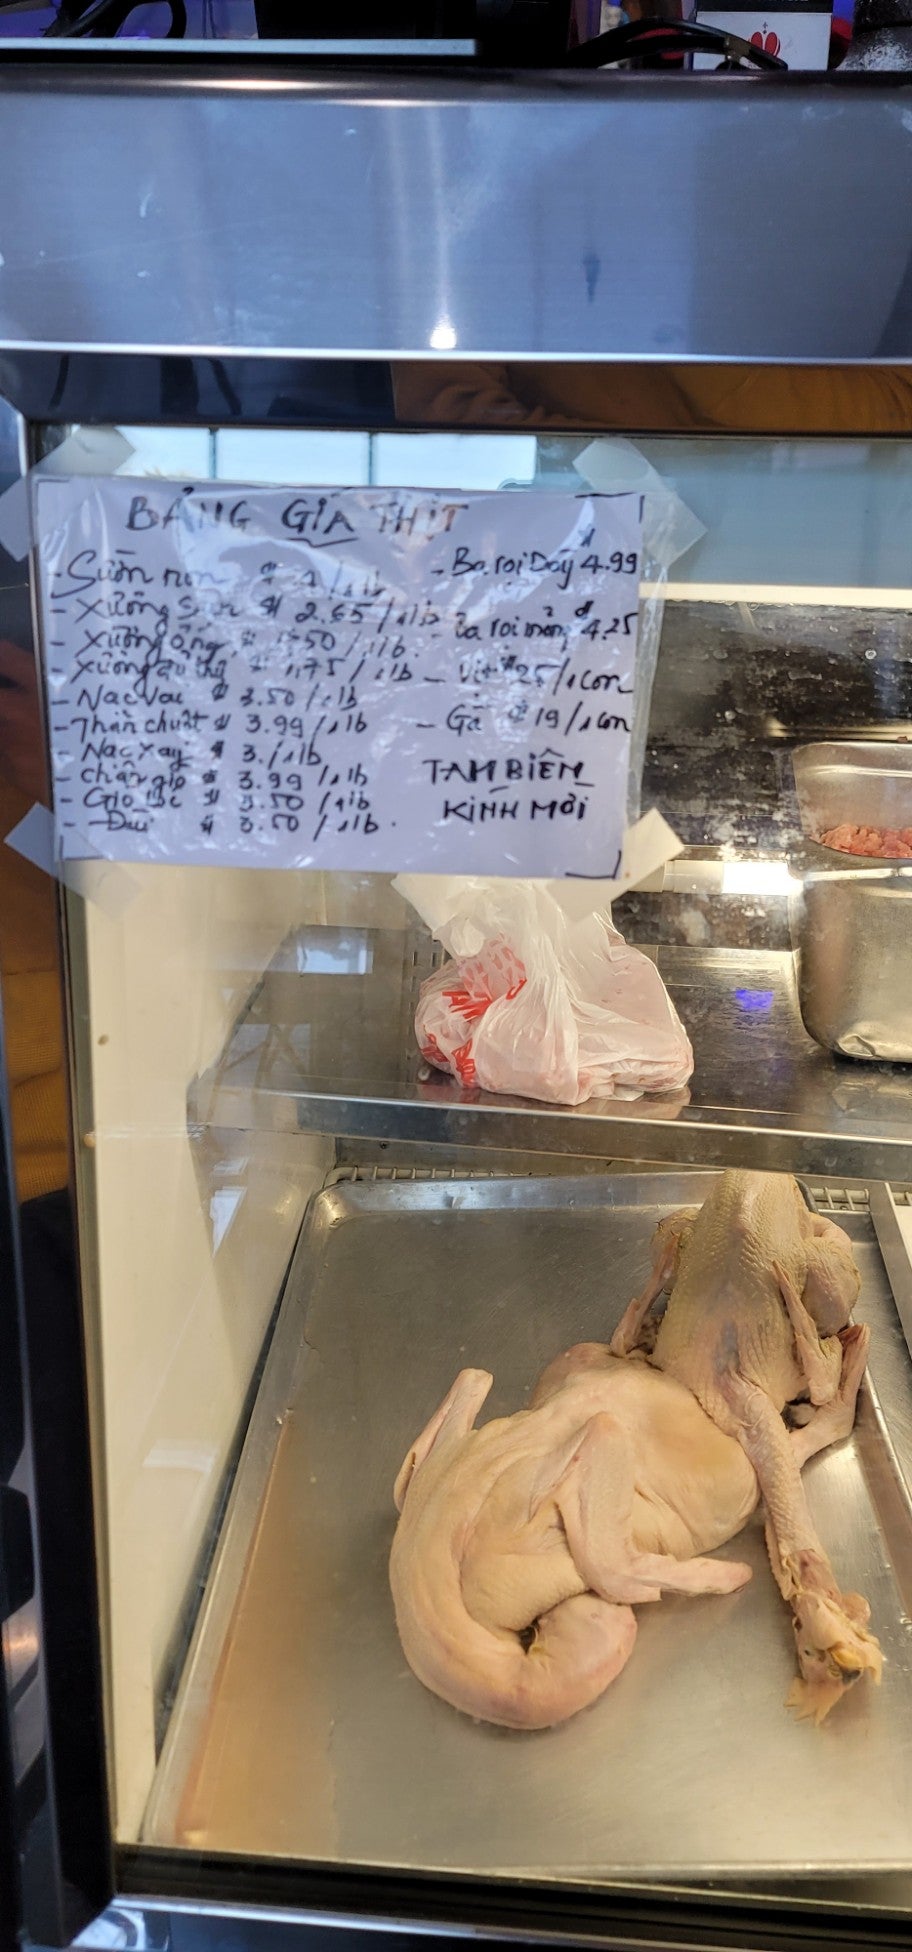 BẢNG GIÁ THỊT
- Sườn non $ /1lb
- Xương $ 2.65/1lb
- Xương ống $ 1.50/1lb.
- Xương $ 1.75/1lb
- Nạc vai $ 3.50/1lb
- Thăn chuột $ 3.99/1lb
- Nạc xay $ 3./1lb
- chân giò $ 3.99/1lb
- Giò $ 3.50/1lb
- Đùi $ 3.50/1lb.
- Ba rọi Dày $ 4.99
- Ba rọi mỏng $ 4.25
- Vịt $ 25/1con
- Gà $ 19/1con
TAM BIÊN
KÍNH MỜI